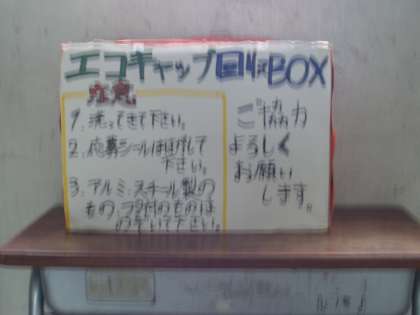 エコキャップ回収BOX
注意
1. 洗ってきて下さい。
2. 応募シールははがして
下さい。
3. アルミ・スチール製の
もの、ラ付のものは
のぞいて下さい。
ご協力
よろしく
お願い
します。